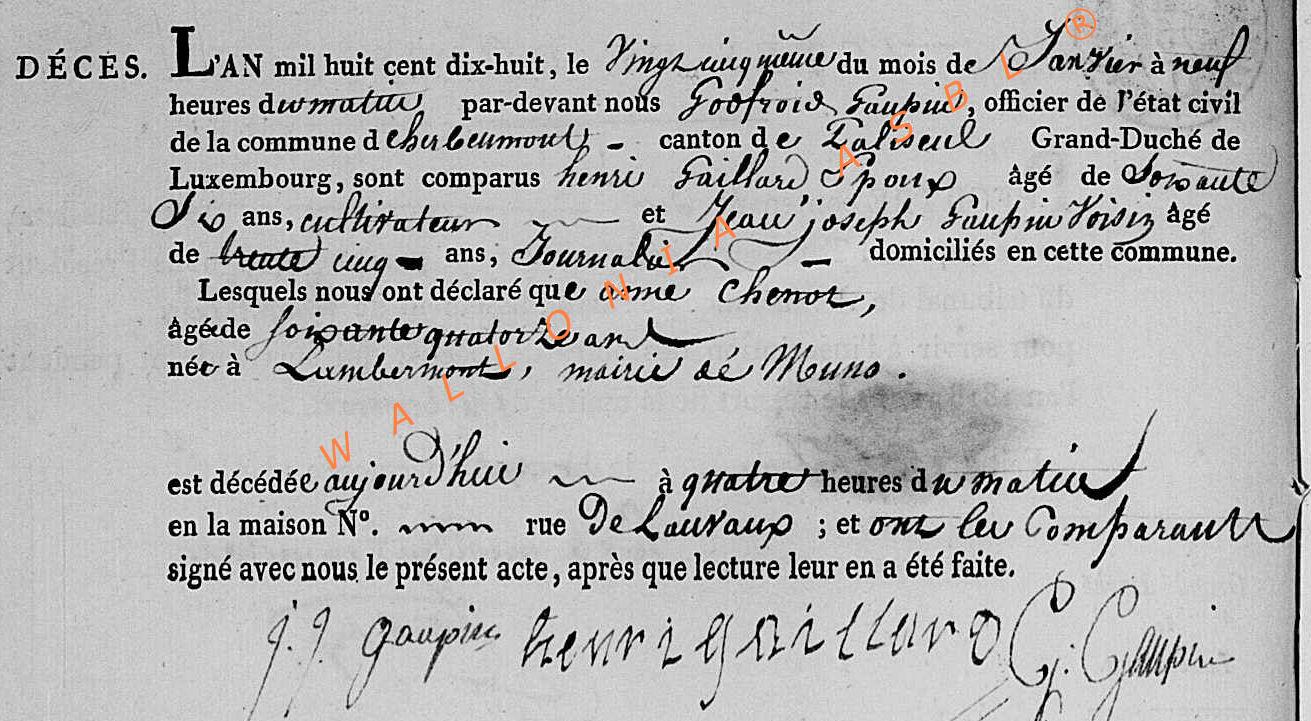 DÉCES. L'AN mil huit cent dix-huit, le Vingt cinquième du mois de Janvier à neuf
heures du matin par-devant nous Godfroid Gaupin, officier de l'état civil
de la commune d cherbeumont - canton de Paliseul Grand-Duché de
Luxembourg, sont comparus henri Gaillard Epoux âgé de Soixante
Six ans, cultivateur et Jean joseph Gaupin Voisin âgé
de trente cinq ans, Journalier domiciliés en cette commune.
Lesquels nous ont déclaré que anne chenot,
âgée de soixante quatorze ans
née à Lambermont, mairie dé Muno.
est décédée aujourd'hui à quatre heures du matin
en la maison N°. rue De Lauvaux ; et ont les Comparants
signé avec nous le présent acte, après que lecture leur en a été faite.
j. j. gaupin henri gaillard G. Gaupin
WALLONIA ASBL ®